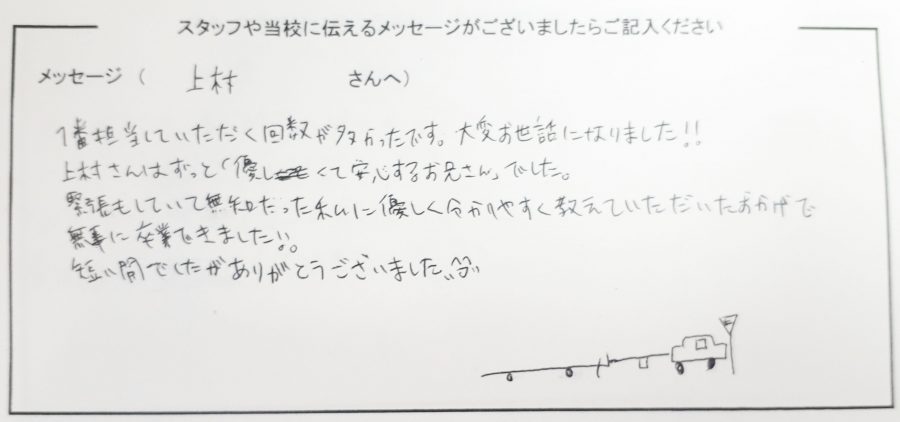 スタッフや当校に伝えるメッセージがございましたらご記入ください
メッセージ ( 上村 さんへ)
1番担当していただく回数が多かったです。大変お世話になりました!!
上村さんはずっと「優しくて安心するお兄さん」でした。
緊張もしていて無知だった私に優しく分かりやすく教えていただいたおかげで
無事に卒業できました!!。
短い間でしたがありがとうございました